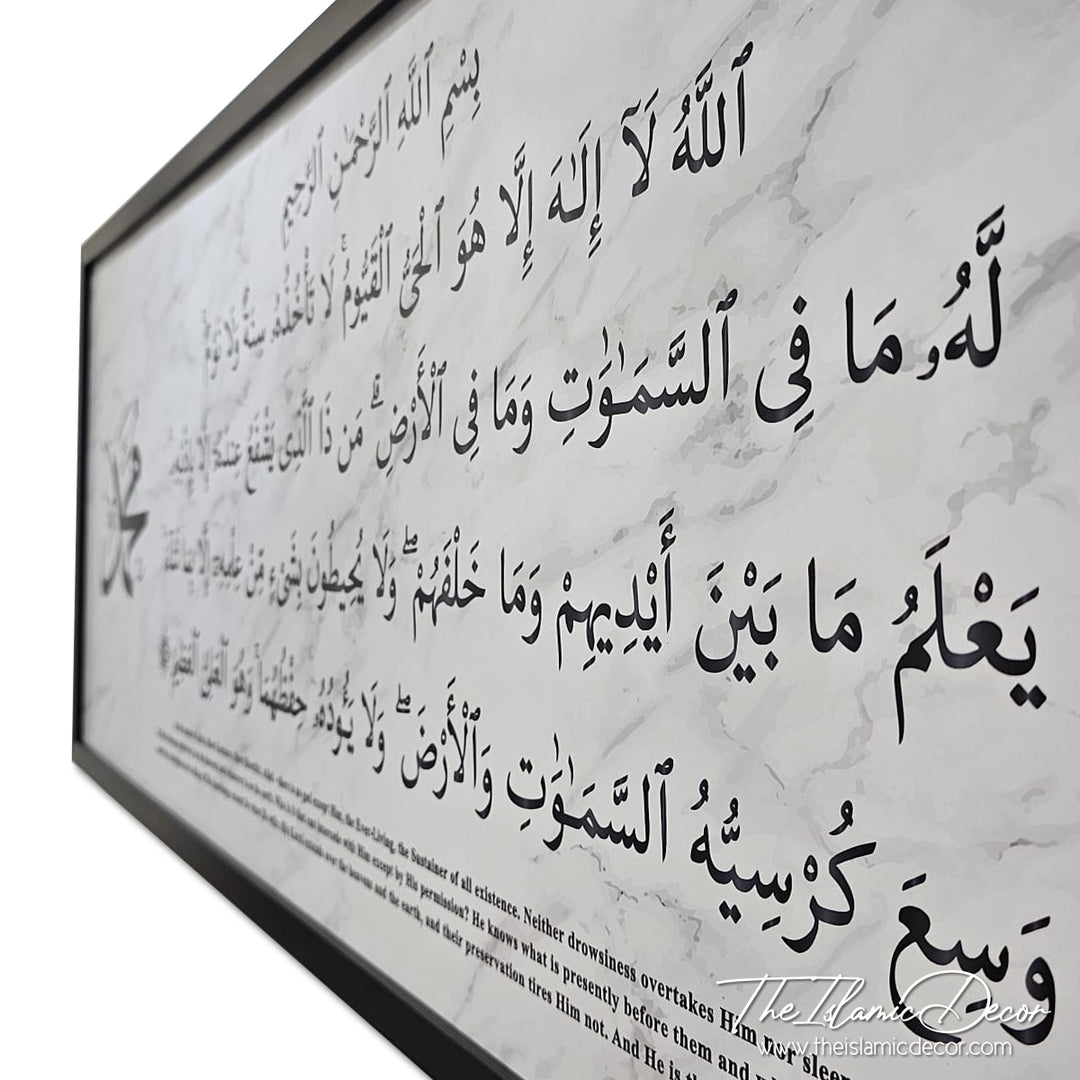 بِسْمِ ٱللَّهِ ٱلرَّحْمَٰنِ ٱلرَّحِيمِ
ٱللَّهُ لَآ إِلَٰهَ إِلَّا هُوَ ٱلْحَىُّ ٱلْقَيُّومُ ۚ لَا تَأْخُذُهُۥ سِنَةٌ وَلَا نَوْمٌ ۚ
لَّهُۥ مَا فِى ٱلسَّمَٰوَٰتِ وَمَا فِى ٱلْأَرْضِ ۗ مَن ذَا ٱلَّذِى يَشْفَعُ عِندَهُۥٓ إِلَّا بِإِذْنِهِۦ ۚ
يَعْلَمُ مَا بَيْنَ أَيْدِيهِمْ وَمَا خَلْفَهُمْ ۖ وَلَا يُحِيطُونَ بِشَىْءٍ مِّنْ عِلْمِهِۦٓ إِلَّا بِمَا شَآءَ ۚ
وَسِعَ كُرْسِيُّهُ ٱلسَّمَٰوَٰتِ وَٱلْأَرْضَ ۖ وَلَا يَـُٔودُهُۥ حِفْظُهُمَا ۚ وَهُوَ ٱلْعَلِىُّ ٱلْعَظِيمُ
except Him, the Ever-Living, the Sustainer of all existence. Neither drowsiness overtakes Him nor sleep
with Him except by His permission? He knows what is presently before them and
over the heavens and the earth, and their preservation tires Him not. And He is
TheIslamicDecor
www.theislamicdecor.com